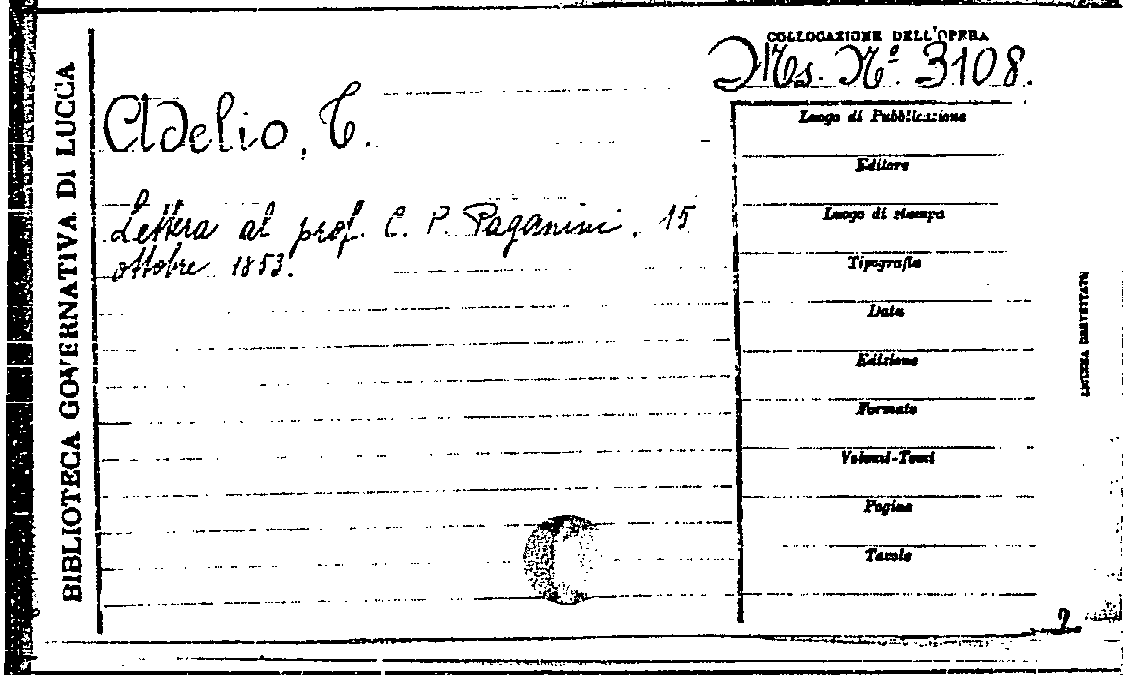 BIBLIOTECA GOVERNATIVA DI LUCCA
COLLOCAZIONE DELL'OPERA
Ms. Nº. 3108.
Adelio, T.
Lettera al prof. C. P. Paganini, 15
ottobre 1853.
Luogo di Pubblicazione
Editore
Luogo di stampa
Tipografia
Data
Edizione
Formato
Volumi-Tomi
Pagine
Tavole